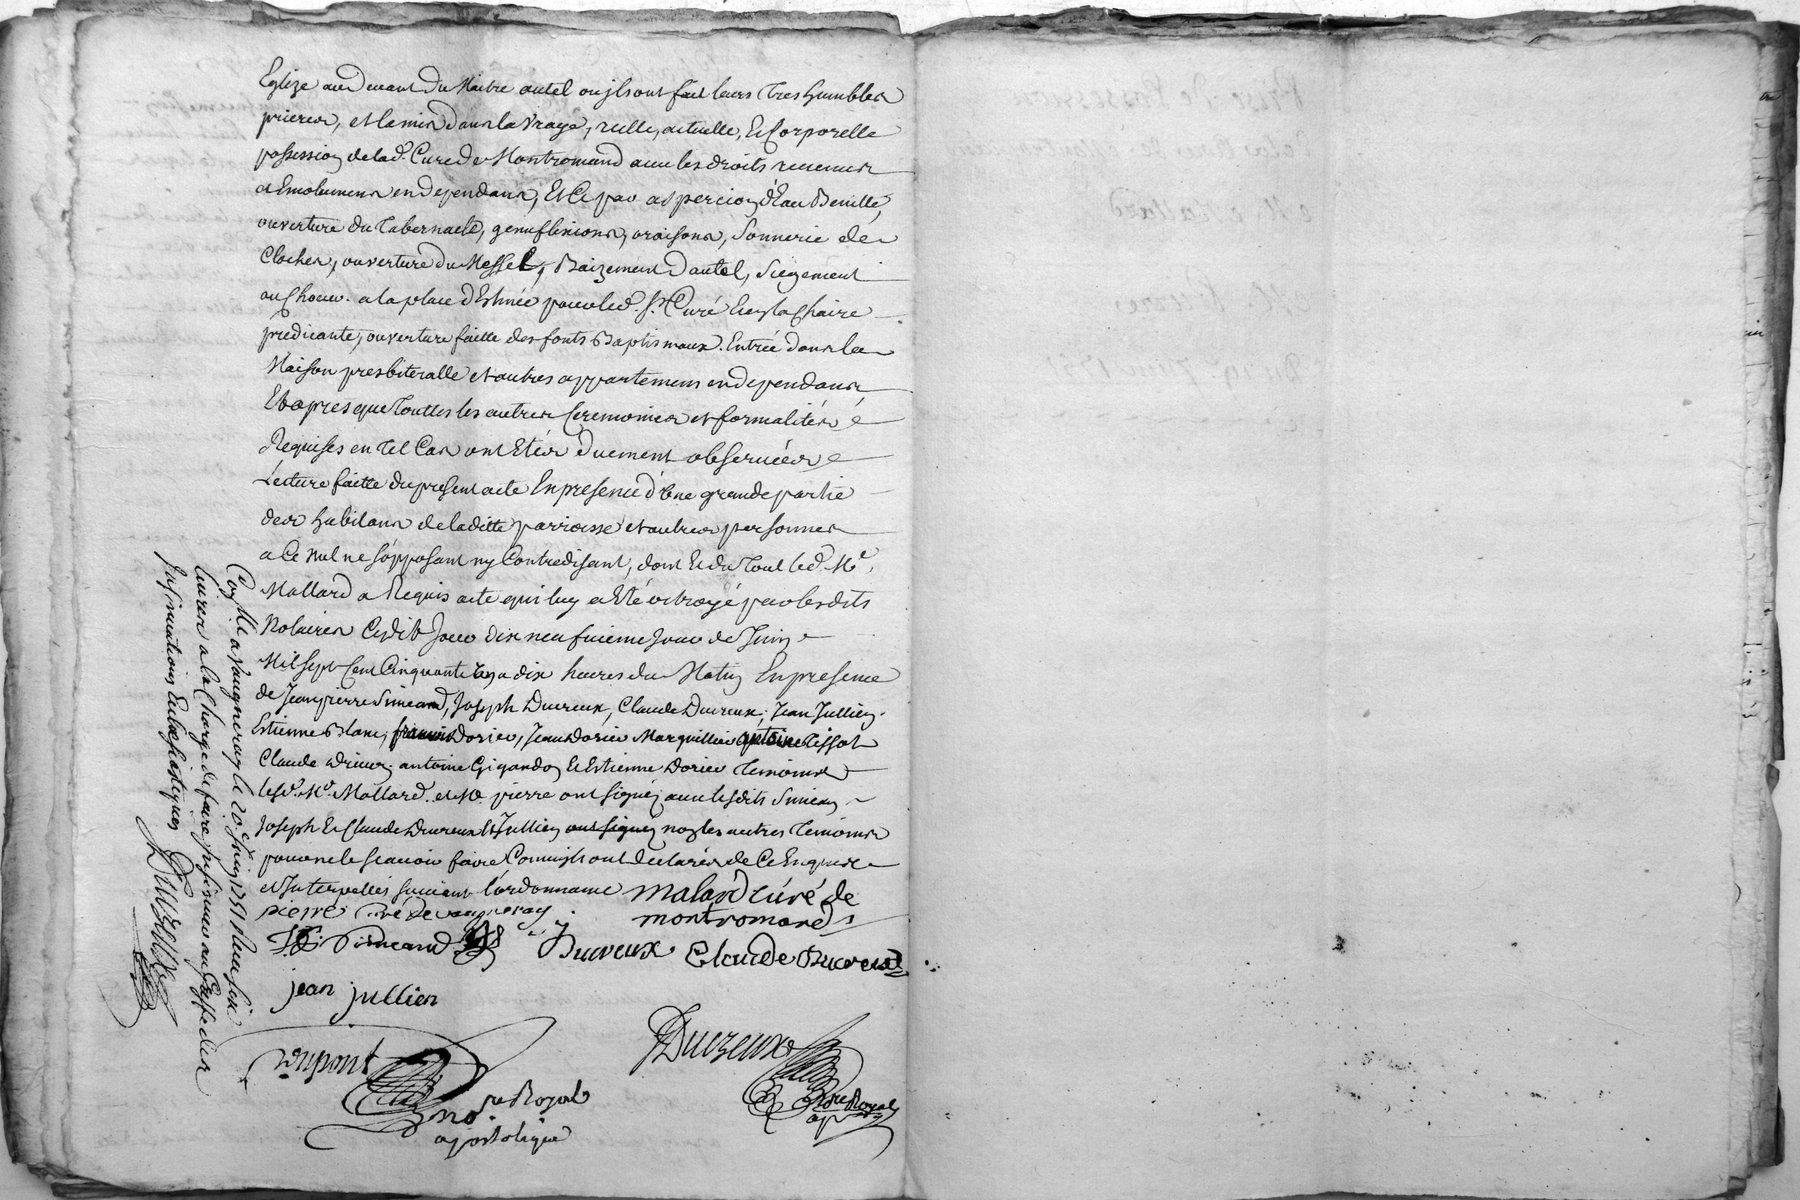 Eglize au devant du Maitre autel ou jls ont fait leurs tres humbles
prieres, et la mis dans la vraye, reelle, actuelle, et Corporelle
possession de lad. Cure de Montromand avec les droits revenus
et Emolumens en dependans, Et Ce par aspercion d'Eau Benitte,
ouverture du Tabernacle, genuflexions, oraisons, Sonnerie de
Cloches, ouverture du Messel, Baizement d'autel, siegement
au Choeur a la place d'Estinée pour led. Sr. Curé En la Chaire
predicante, ouverture faitte des fonts Baptismaux. Entrée dans la
Maison presbiteralle et autres appartemens en dependans
Et apres que Touttes les autres Ceremonies et formalités
Requises en tel Cas ont Etés duement observées
Lecture faitte du present acte En presence d'Une grande partie
des habitans de laditte parroisse et autres personnes
a Ce nul ne s'opposant ny Contredisant, dont Et du Tout led. Me.
Mallard a Requis acte qui luy a Eté octroyé par lesdits
Notaires Cejdit Jour dix neufvieme Jour de Juin
Mil Sept Cent Cinquante un a dix heures du Matin En presence
de Jean pierre Simeand, Joseph Ducreux, Claude Ducreux, Jean Jullien
Estienne Blanc, francois Dorier, Jean Dorier Marguillier antoine Tissot
Claude antoine Gigandon Et Estienne Dorier Temoins
led. Me. Mallard et Me. pierre ont signé, avec lesdits Simean
Joseph Et Claude Ducreux Et Jullien ont signéz non les autres Temoins
pour ne le scavoir faire Comm'jls ont declarés de Ce Enquis
et Interpellés suivant l'ordonnance malard curé de
montromand
pierre curé de vaugneray
Simeand
J Ducreux Claude Ducreux
jean jullien
Dupont
nore Royal
apostolique
Ducreux
Nore Royal
ap
Conlle a Vaugneray le 20e Juin 1751 Reçu six
livres a la Charge de faire jnsinuer au Greffe des
Jnsinuations Eclesiastiques Ducreux